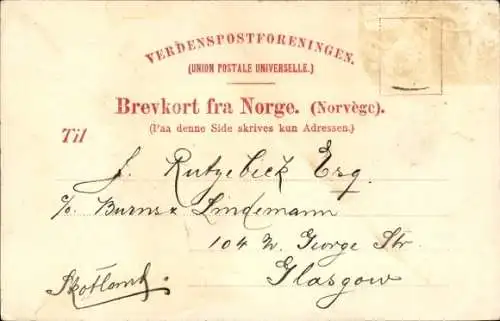 VERDENSPOSTFORENINGEN.
(UNION POSTALE UNIVERSELLE.)
Brevkort fra Norge. (Norvège).
(Paa denne Side skrives kun Adressen.)
Til
J. Rutzebeck Esq.
c/o Burns & Lindemann
104 W. George Str.
Glasgow
Skotland.